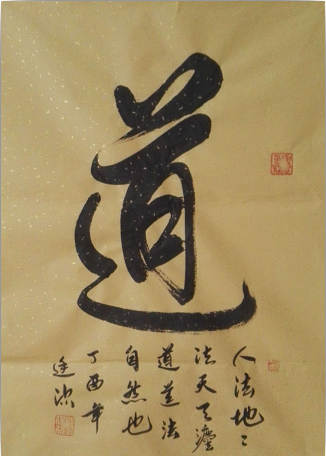 道
人法地〻
法天天灋
道道法
自然也
丁酉年